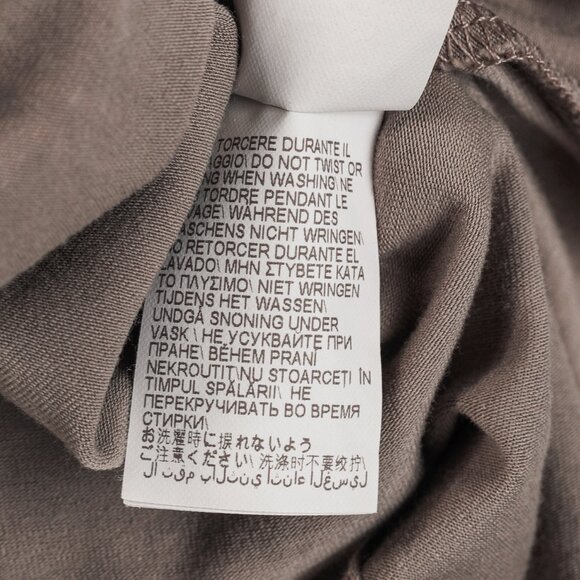 TORCERE DURANTE IL
AGGIO\ DO NOT TWIST OR
NG WHEN WASHING\NE
TORDRE PENDANT LE
VAGE\ WÄHREND DES
ASCHENS NICHT WRINGEN\
O RETORCER DURANTE EL
LAVADO\ ΜΗΝ ΣΤΥΒΕΤΕ ΚΑΤΑ
ΤΟ ΠΛΥΣΙΜΟ\ NIET WRINGEN
TIJDENS HET WASSEN\
UNDGÅ SNONING UNDER
VASK \ НЕ УСУКВАЙТЕ ПРИ
ПРАНЕ\ BĚHEM PRANÍ
NEKROUTIT\ NU STOARCEȚI ÎN
TIMPUL SPĂLĂRII\ НЕ
ПЕРЕКРУЧИВАТЬ ВО ВРЕМЯ
СТИРКИ\
お洗濯時に捩れないよう
ご注意ください\ 洗涤时不要绞拧\